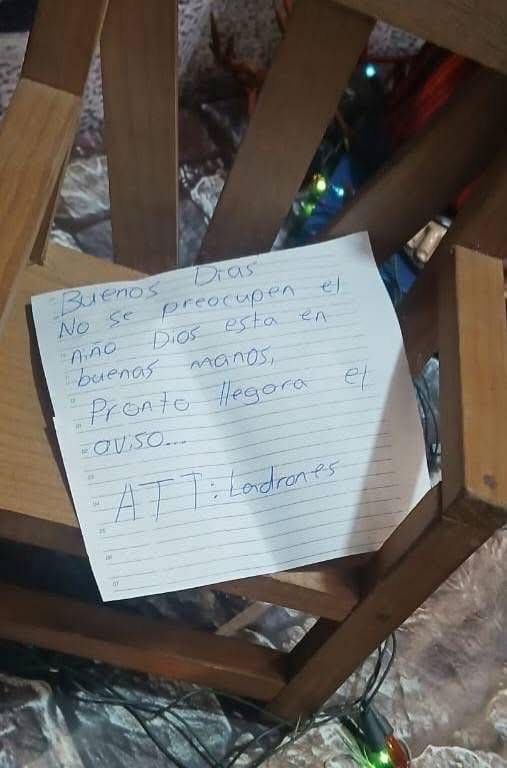 Buenos Dias
No se preocupen el
niño Dios esta en
buenas manos,
Pronto llegara el
aviso...
ATT: Ladrones